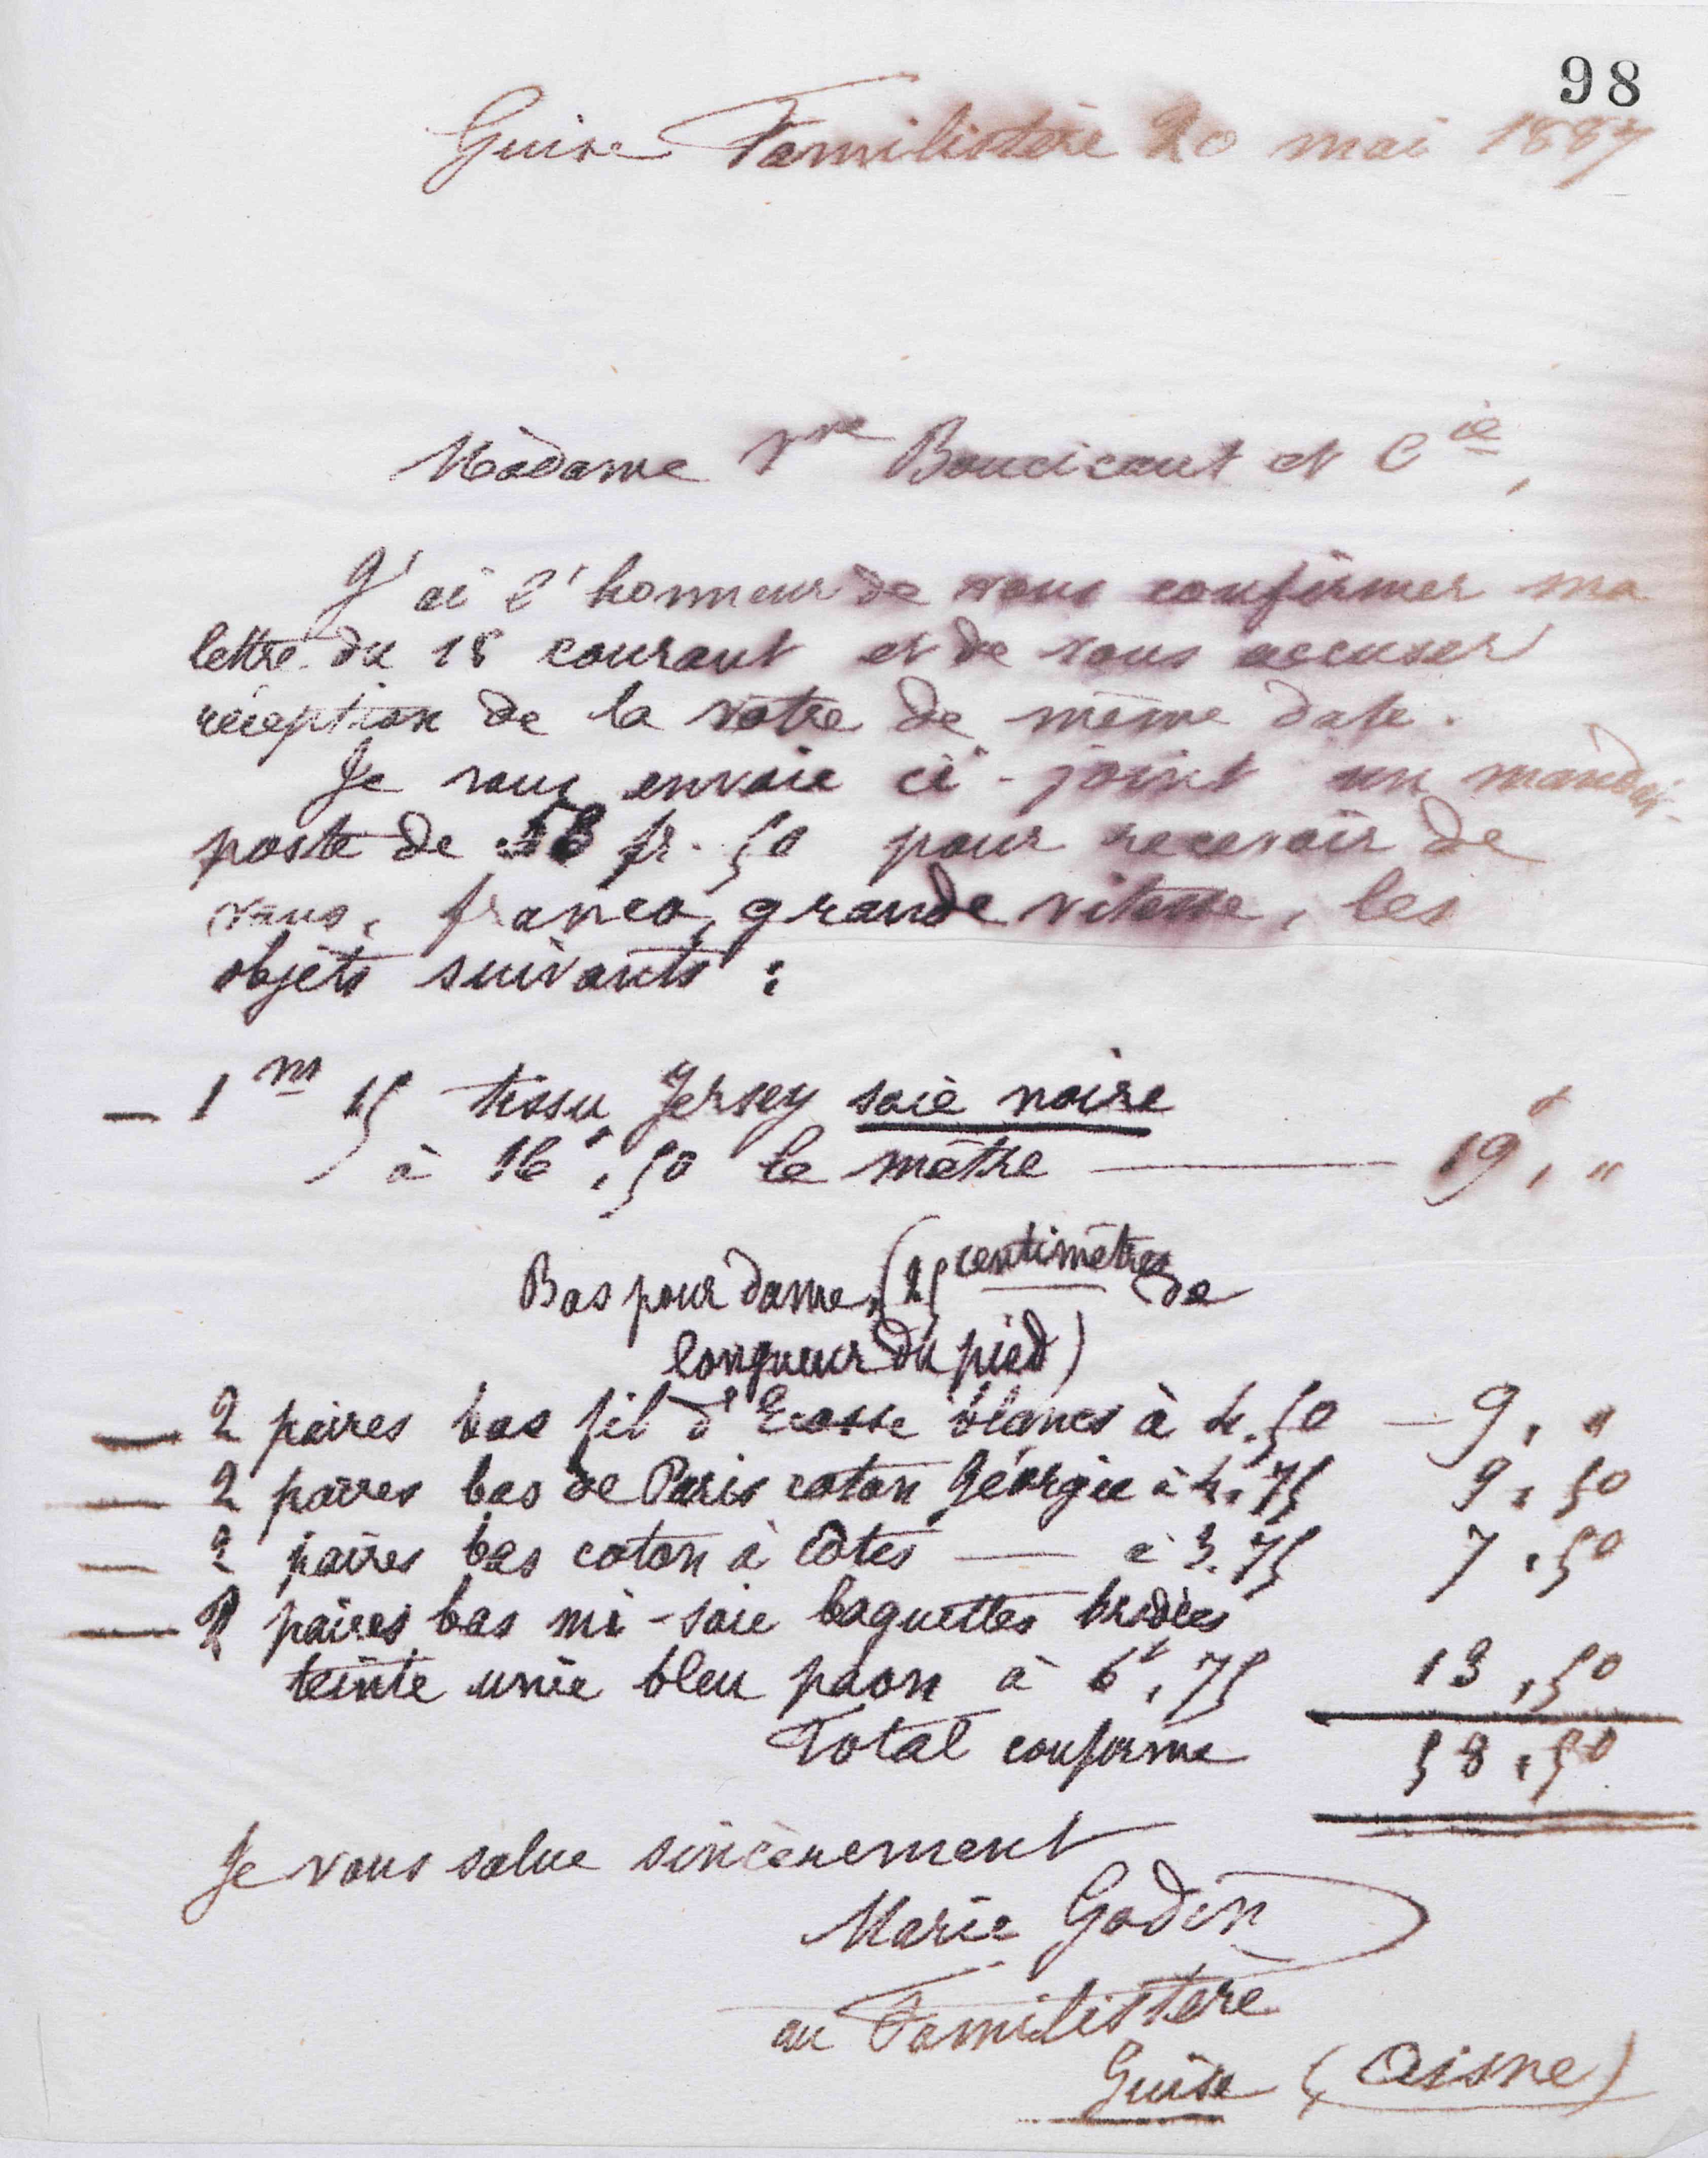 98
Guise Familistère 20 mai 1887
Madame Vve Boucicaut et Cie,
J'ai l'honneur de vous confirmer ma
lettre du 18 courant et de vous accuser
réception de la votre de même date.
Je vous envoie ci-joint un mandat-
poste de 58 fr. 50 pour recevoir de
vous, franco, grande vitesse, les
objets suivants :
— 1 m 15 tissu Jersey soie noire
à 16 f, 50 le mètre — 19 f, "
Bas pour dame, (25 centimètres de
longueur du pied)
— 2 paires bas fil d'Ecosse blancs à 4.50 — 9, "
— 2 paires bas de Paris coton Géorgie à 4,75 9,50
— 2 paires bas coton à côtes — à 3.75 7,50
— 2 paires bas mi-soie baguettes brodées
teinte unie bleu paon à 6 f, 75 13,50
Total conforme 58,50
Je vous salue sincèrement
Marie Godin
au Familistère
Guise (Aisne)